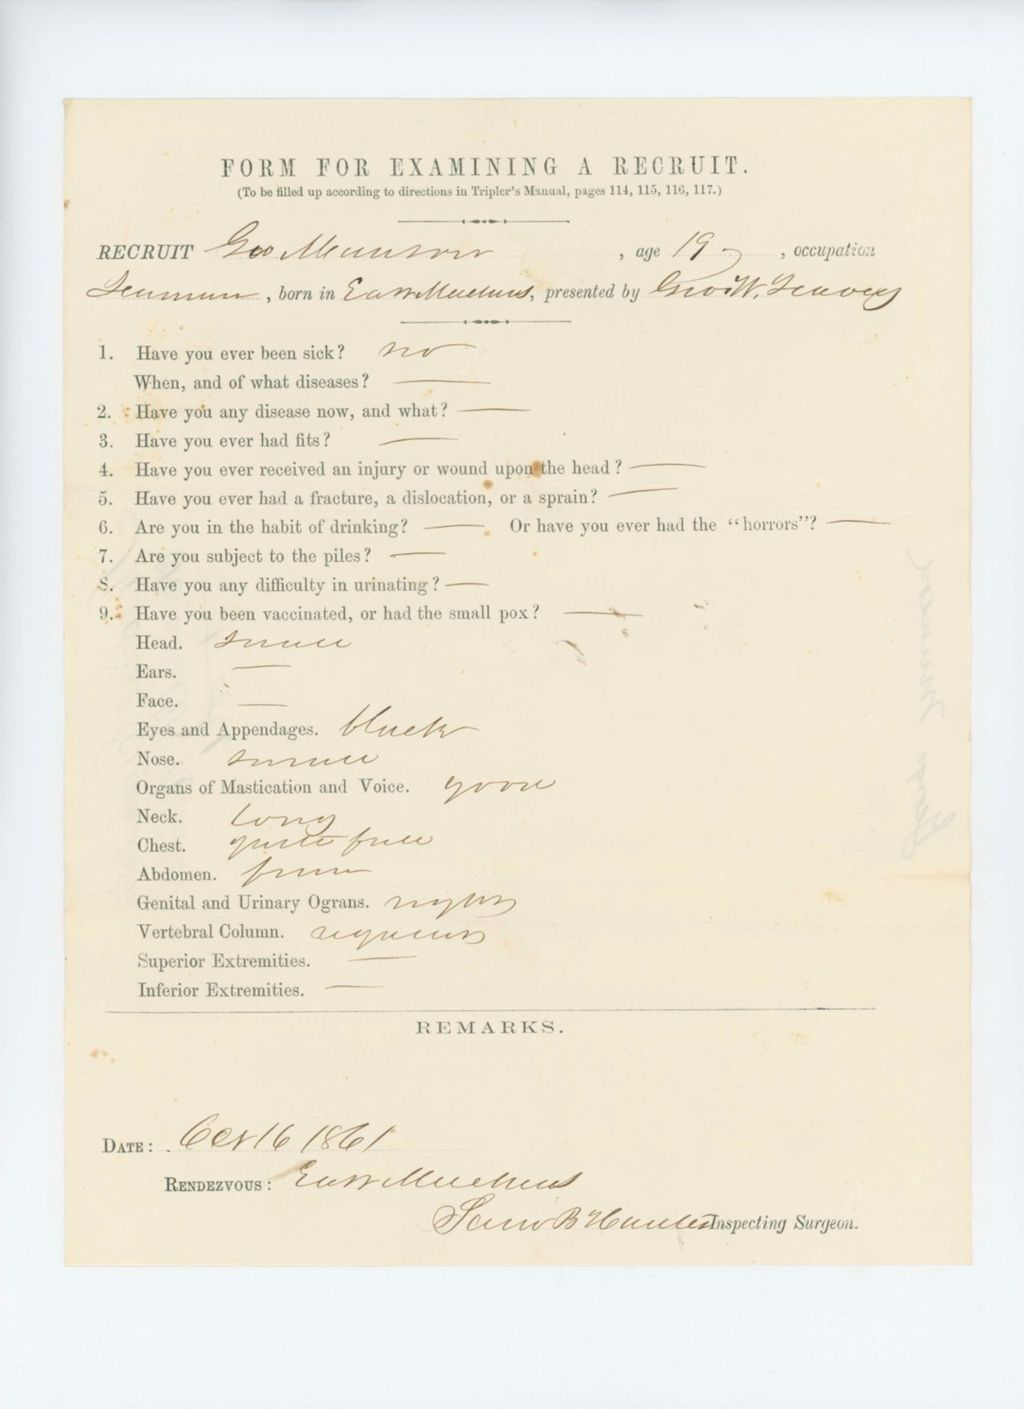 FORM FOR EXAMINING A RECRUIT.
(To be filled up according to directions in Tripler's Manual, pages 114, 115, 116, 117.)
RECRUIT Geo Munson , age 19 , occupation
Seaman , born in East Machias, presented by Geo W.
1. Have you ever been sick? no
When, and of what diseases? —
2. Have you any disease now, and what? —
3. Have you ever had fits? —
4. Have you ever received an injury or wound upon the head? —
5. Have you ever had a fracture, a dislocation, or a sprain? —
6. Are you in the habit of drinking? — Or have you ever had the "horrors"? —
7. Are you subject to the piles? —
8. Have you any difficulty in urinating? —
9. Have you been vaccinated, or had the small pox? —
Head. small
Ears. —
Face. —
Eyes and Appendages. black
Nose. small
Organs of Mastication and Voice. good
Neck. long
Chest. quite full
Abdomen. firm
Genital and Urinary Ograns. right
Vertebral Column.
Superior Extremities. —
Inferior Extremities. —
REMARKS.
DATE: Oct 16 1861
RENDEZVOUS: East Machias
Sam B Hunter Inspecting Surgeon.